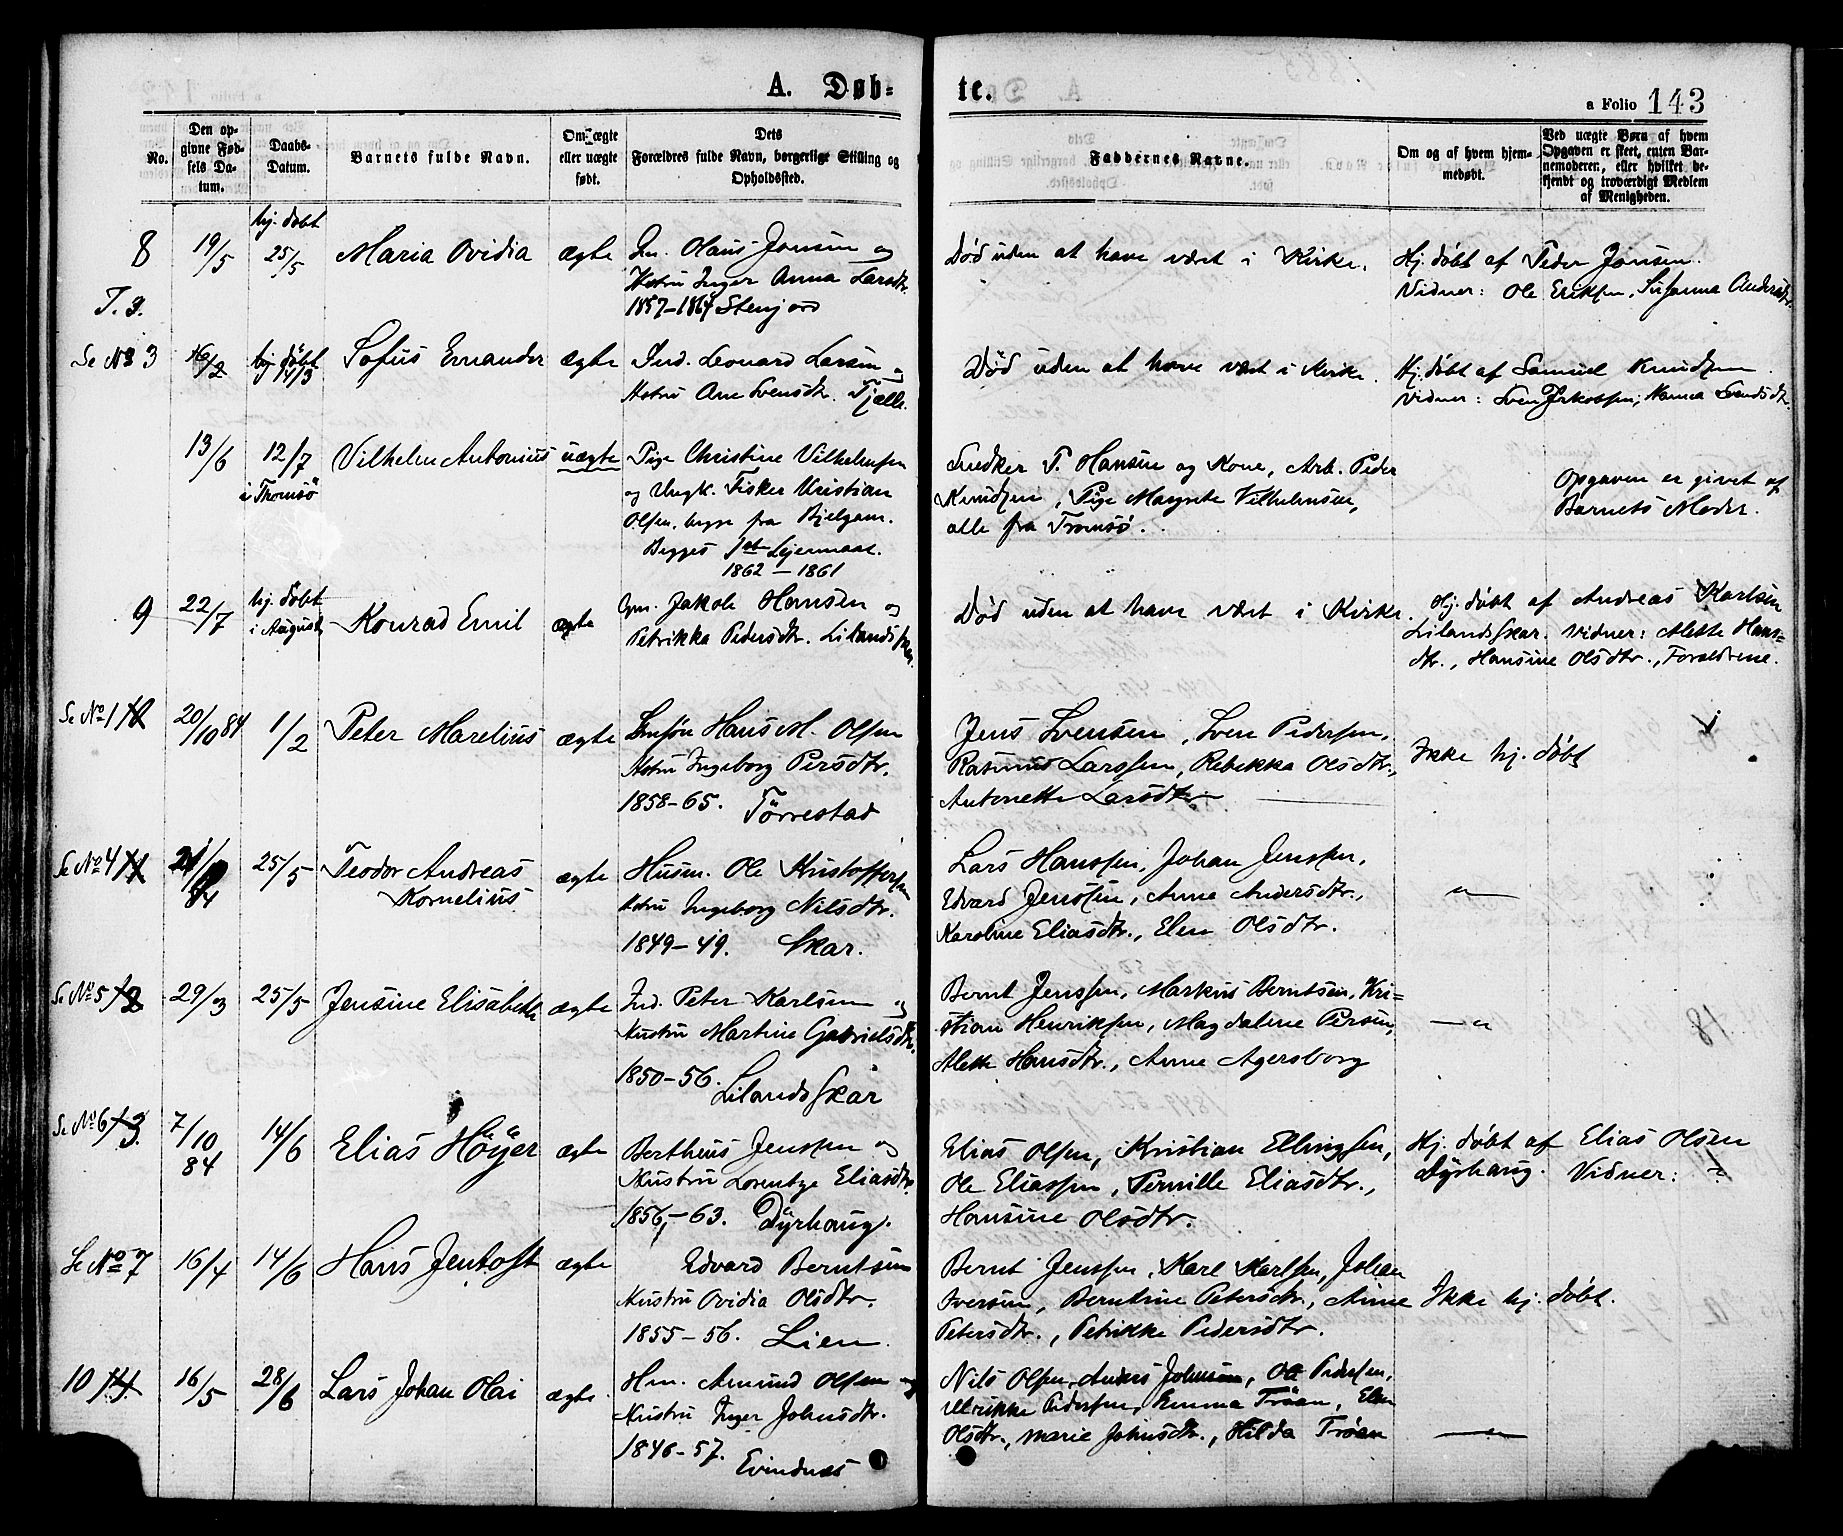 A. Døb-
te.
a Folio 143
No.
Den op-
givne Fød-
sels Da-
tum.
Daabs-
Datum.
Barnets fulde Navn.
Om ægte
eller uægte
født.
Dets
Forældres fulde Navn, borgerlige Stilling og
Opholdssted.
Faddernes Navne.
Om og af hvem hjem-
medøbt.
Ved uægte Børn af hvem
Opgaven er skeet, enten Bar-
nemoderen, eller hvilket be-
kjendt og troværdigt Medlem
af Menigheden.
8
19/5
hj. døbt
25/5
Maria Ovidia
ægte
Hans Jonsen og
Hstru Inger Anna Larsdtr.
1857-1864
Død uden at have været i Kirke.
Hj. døbt af Peder Jonsen.
Vidner: Ole Eriksen, Susanna Andersdtr.
Se No 3
hj. døbt
14/3
Sofus Ernander
ægte
Ind. Leonard Larsen og
Hstru Ane Svensdtr. Fjelle.
Død uden at have været i Kirke.
Hj. døbt af Samuel Knudsen.
Vidner: Sven Jakobsen, Hanna Svendsdtr.
13/6
12/7
i Tromsö
Vilhelm Antonius
uægte
Pige Christine Vilhelmsen
og Ungk. Fisker Kristian
Olsen, begge fra Bjelgam.
Begges 1st Lejermaal.
1862 - 1861
Snedker P. Hansen og Kone, Arb. Peder
Knudsen, Pige Margrete Vilhelmsen,
alle fra Tromsö.
Opgaven er givet af
Barnets Moder.
9
22/7
hj. döbt
i August
Konrad Emil
ægte
Gm. Jakob Hansen og
Petrikka Pedersdtr. Lilandskar.
Død uden at have været i Kirke.
Hj. døbt af Andreas Karlsen
Lilandskar. Vidner: Alette Hans-
dtr., Hansine Olsdtr., Forældrene.
Se No 1
20/10 84
1/2
Peter Marelius
ægte
Hans M. Olsen
Hstru Ingeborg Persdtr.
1858-65. Törrestad
Jens Svensen, Sven Pedersen,
Rasmus Larssen, Rebekka Olsdtr.,
Antonette Larsdtr.
Ikke hj. døbt
Se No 4
84
25/5
Teodor Andreas
Kornelius
ægte
Husm. Ole Kristoffersen
Hstru Ingeborg Nilsdtr.
1849-49. Skar.
Lars Hanssen, Johan Jenssen,
Edvard Jenssen, Anne Andersdtr.,
Karoline Eliasdtr., Elen Olsdtr.
—"—
Se No 5
29/3
25/5
Jensine Elisabeth
ægte
Ind. Peter Karlsen og
Hustru Martine Gabrielsdtr.
1850-56. Lilandsskar
Bernt Jenssen, Markus Berntsen, Kri-
stian Henriksen, Magdalene Persen,
Alette Hansdtr., Anne Agersborg
—"
Se No 6
7/10
84
14/6
Elias Höyer
ægte
Bertheus Jenssen og
Hustru Lorentze Eliasdtr.
1856,-63. Dyrhaug.
Elias Olsen, Kristian Ellingsen,
Ole Eliassen, Pernille Eliasdtr.,
Hansine Olsdtr.
Hj. døbt af Elias Olsen
Dyrhaug. Vidner: ?
Se No 7
16/4
14/6
Hans Jentoft
ægte
Edvard Berntsen
Hustru Ovidia Olsdtr.
1855-56. Lien.
Bernt Jenssen, Karl Karlsen, Johan
Iversen, Berntine Petersdtr., Anne
Petersdtr., Petrikke Pedersdtr.
Ikke hj. døbt.
10
16/5
28/6
Lars Johan Olai
ægte.
Hm. Amund Olsen og
Hustru Inger Johnsdtr.
1846-57. Evindnes
Nils Olsen, Anders Johnsen, Ole Pedersen,
Ulrikke Pedersen, Emma Tröan, Elen
Olsdtr., Marie Johnsdtr., Hilda Tröan
—"—